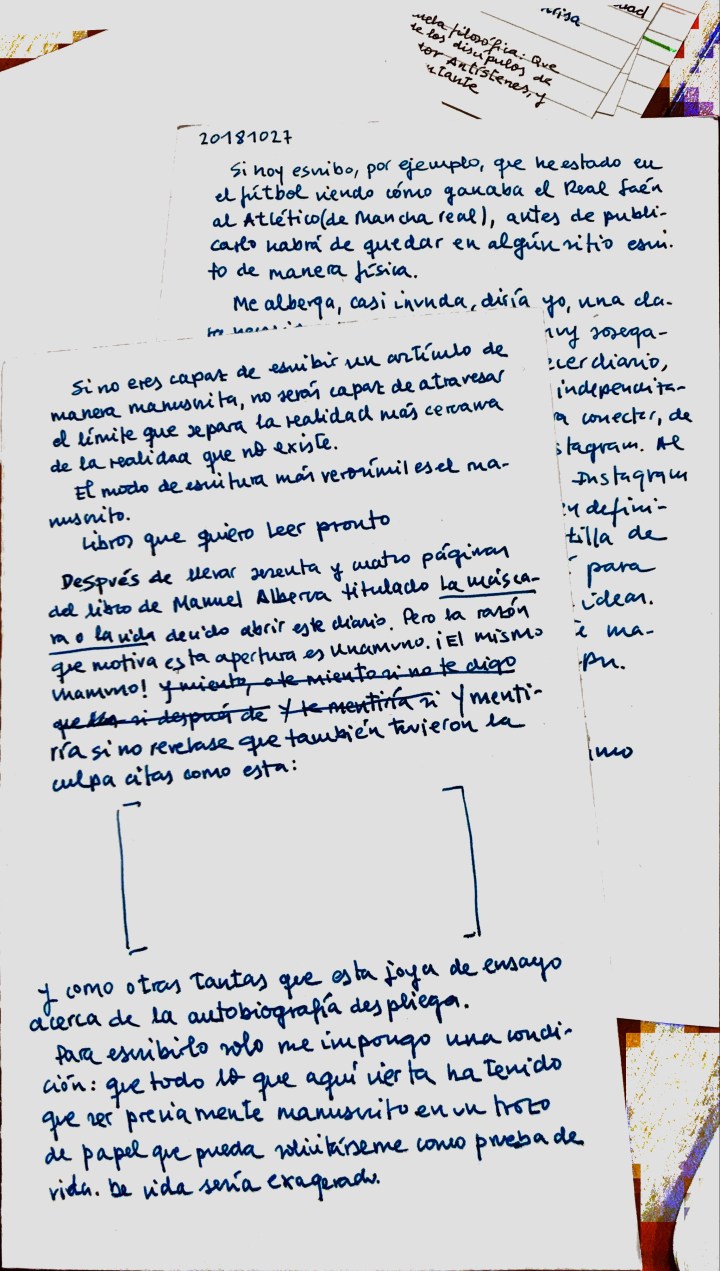 risa
dad
uela filosófica: Que
te los discípulos de
tor Antístenes, y
tante
20181027
Si hoy escribo, por ejemplo, que he estado en
el fútbol viendo cómo ganaba el Real Jaén
al Atlético (de Mancha real), antes de publi-
carlo habrá de quedar en algún sitio escri-
to de manera física.
Me alberga, casi inunda, diría yo, una cla-
ra necesi
uy sosega-
ecer diario,
independi ta-
a conectar, de
stagram. Al
Instagram
en defini-
tilla de
para
idear.
e ma-
pu.
imo
Si no eres capaz de escribir un artículo de
manera manuscrita, no serás capaz de atravesar
el límite que separa la realidad más cercana
de la realidad que no existe.
El modo de escritura más verosímil es el ma-
nuscrito.
Libros que quiero leer pronto
Después de llevar sesenta y cuatro páginas
del libro de Manuel Alberca titulado La másca-
ra o la vida decido abrir este diario. Pero la razón
que motiva esta apertura es Unamuno. ¡El mismo
Unamuno! y miento, o te miento si no te digo
que si después de Y te mentiría si Y menti-
ría si no revelase que también tuvieron la
culpa citas como esta:
[ ]
Y como otras tantas que esta joya de ensayo
acerca de la autobiografía despliega.
Para escribirlo solo me impongo una condi-
ción: que todo lo que aquí vierta ha tenido
que ser previamente manuscrito en un trozo
de papel que pueda solicitárseme como prueba de
vida. De vida sería exagerado.